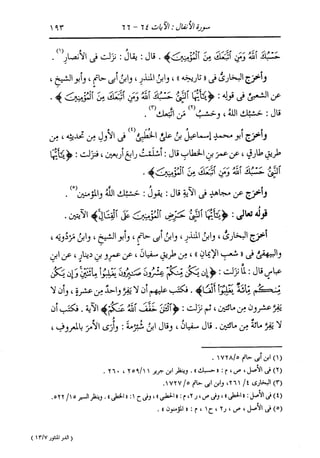 سورة الأنفال: الآيات ٦٤ - ٦٦
١٩٣
حَسْبُكَ اللَّهُ وَمَنِ اتَّبَعَكَ مِنَ الْمُؤْمِنِينَ﴾ . قال : يقالُ : نزلت في الأنصارِ(١) .
وأخرَج البخاريُّ في « تاريخِه » ، وابنُ المنذرِ ، وابنُ أبي حاتمٍ ، وأبو الشيخِ ،
عن الشعبيِّ في قولِه : ﴿يَتَأَيُّهَا النَّبِيُّ حَسْبُكَ اللَّهُ وَمَنِ اتَّبَعَكَ مِنَ الْمُؤْمِنِينَ﴾ .
قال : حسبُك اللهُ ، وحَسْبُ(٢) مَن اتَّبعك(٣) .
وأخرَج أبو محمدٍ إسماعيلُ بنُ عليٍّ الخُطَبيُّ(٤) في الأولِ مِن تحديثِه ، مِن
طريقِ طارقٍ ، عن عمرَ بنِ الخطابِ قال : أسْلَمْتُ رابعَ أربعين ، فنزلت : ﴿يَتَأَيُّهَا
النَّبِيُّ حَسْبُكَ اللَّهُ وَمَنِ اتَّبَعَكَ مِنَ الْمُؤْمِنِينَ﴾ .
وأخرَج عن مجاهدٍ في الآيةِ قال : يقولُ : حسبُك اللهُ والمؤمنين(٥) .
قولُه تعالى : ﴿يَتَأَيُّهَا النَّبِيُّ حَرِّضِ الْمُؤْمِنِينَ عَلَى الْقِتَالِ﴾ الآيتين .
أخرَج البخاريُّ ، وابنُ المنذرِ ، وابنُ أبي حاتمٍ ، وأبو الشيخِ ، وابنُ مَرْدُويَه ،
والبيهقيُّ في « شعبِ الإيمانِ » ، مِن طريقِ سفيانَ ، عن عمرِو بنِ دينارٍ ، عن ابنِ
عباسٍ قال : لمَّا نزلت : ﴿إِن يَكُن مِّنكُمْ عِشْرُونَ صَابِرُونَ يَغْلِبُوا مِائَتَيْنِ وَإِن يَكُن
مِّنكُم مِّائَةٌ يَغْلِبُوا أَلْفًا﴾ . فكُتب عليهم أن لا يَفِرَّ واحدٌ مِن عشرةٍ ، وأن لا
يَفِرَّ عشرون مِن مائتين ، ثم نزلت : ﴿الْـَٔنَ خَفَّفَ اللَّهُ عَنكُمْ﴾ الآية . فكتَب أن
لا يَفِرَّ مائةٌ مِن مائتين . قال سفيانُ ، وقال ابنُ شُبْرُمةَ : وأرَى الأمرَ بالمعروفِ ،
(١) ابن أبي حاتم ١٧٢٨/٥ .
(٢) في الأصل ، ص ، م : « حسبك » . وينظر ابن جرير ٢٥٩/١١ ، ٢٦٠ .
(٣) البخاري ٢٦١/٤ ، وابن أبي حاتم ١٧٢٧/٥ .
(٥) في الأصل ، ص ، ر٢ ، ح١ ، م : « المؤمنون » .
( الدر المنثور ١٣/٧ )